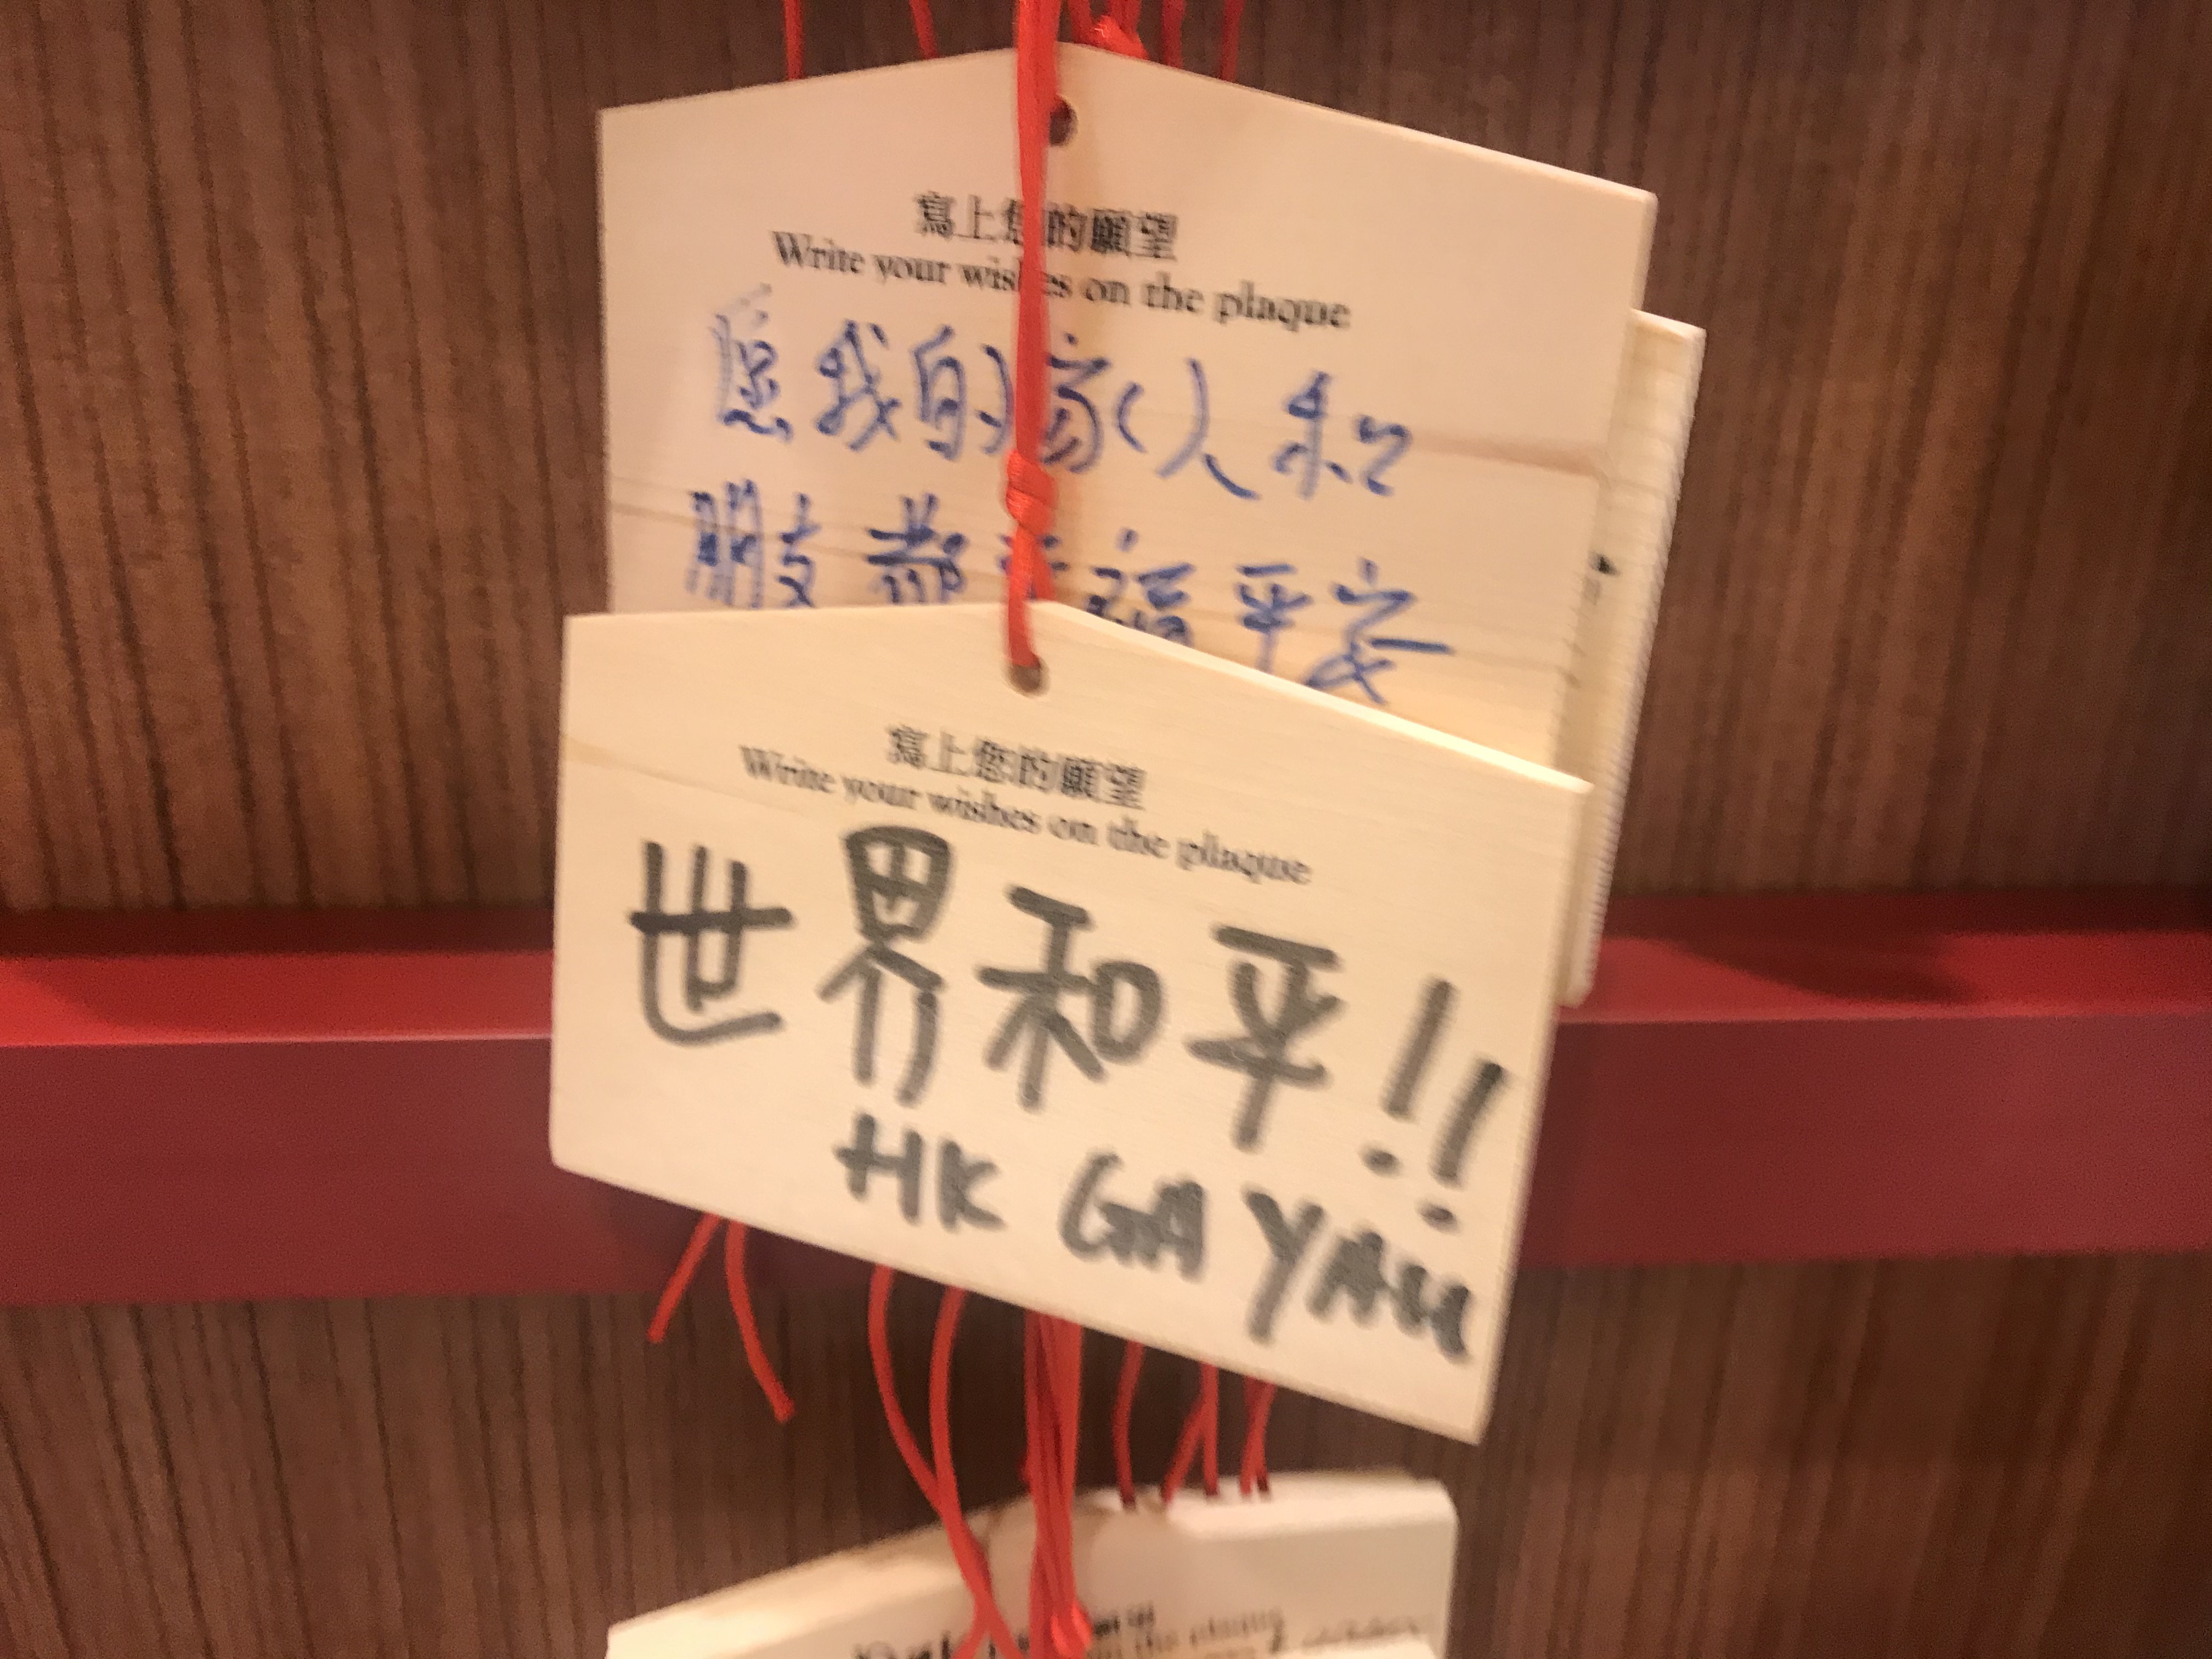 寫上您的願望
Write your wishes on the plaque
愿我的家人和
朋友都幸福平安
寫上您的願望
Write your wishes on the plaque
世界和平!!
HK GA YAU